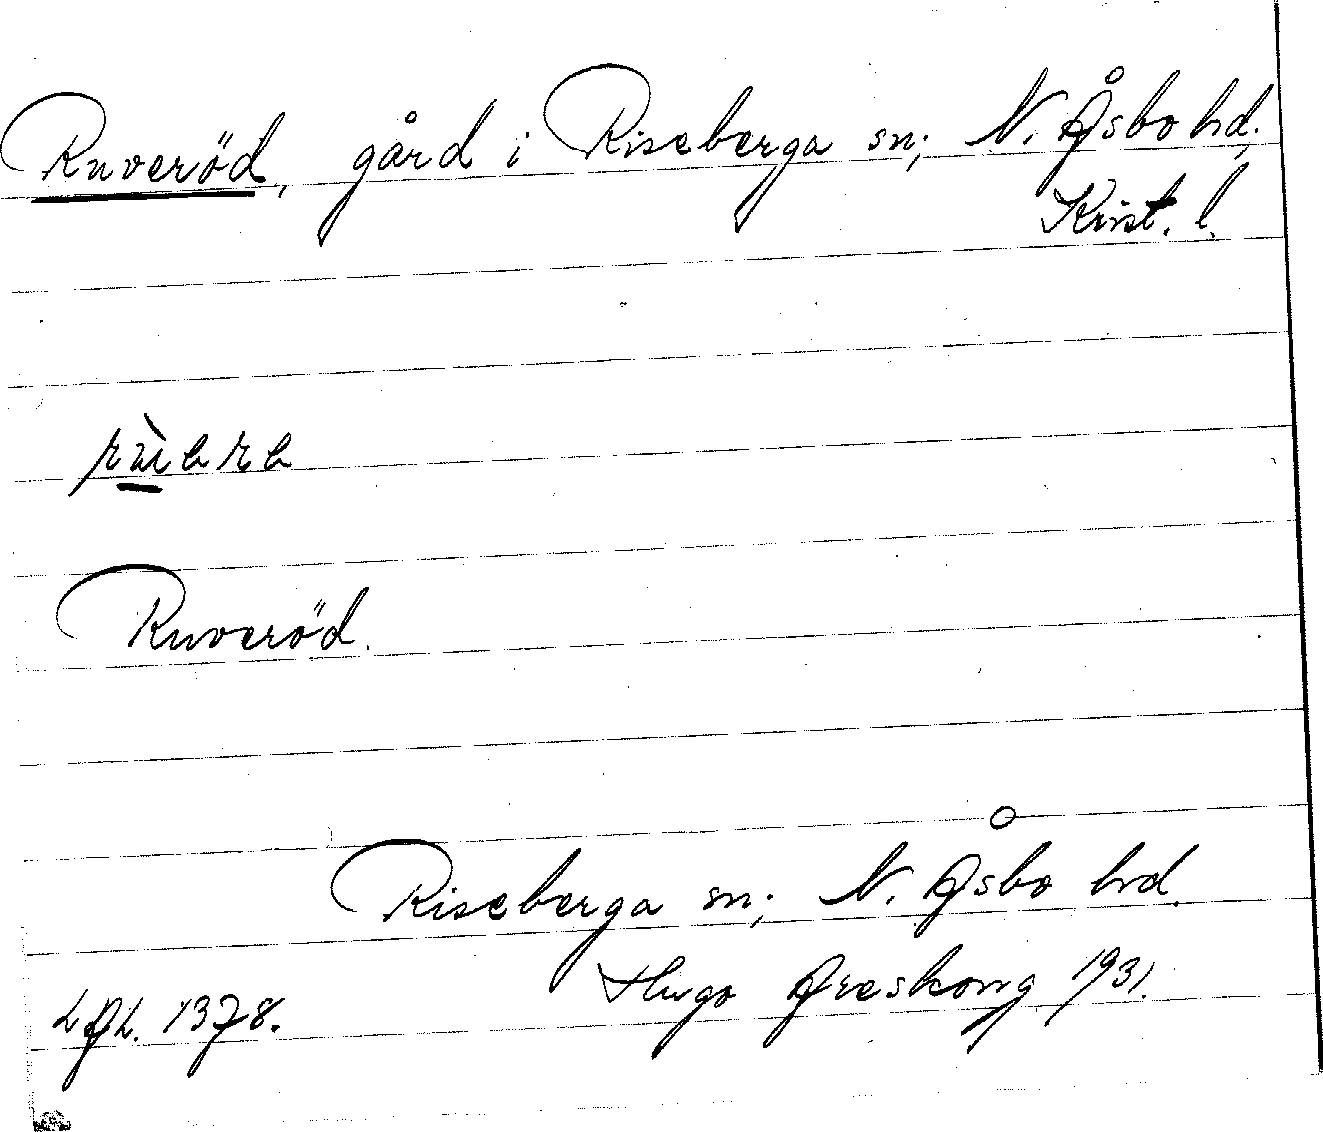 Ruveröd, gård i Riseberga sn; N. Åsbo hd;
Krist. l.
Ruveröd.
Riseberga sn; N. Åsbo hd.
Hugo Areskoug 1931.
LAL. 1378.